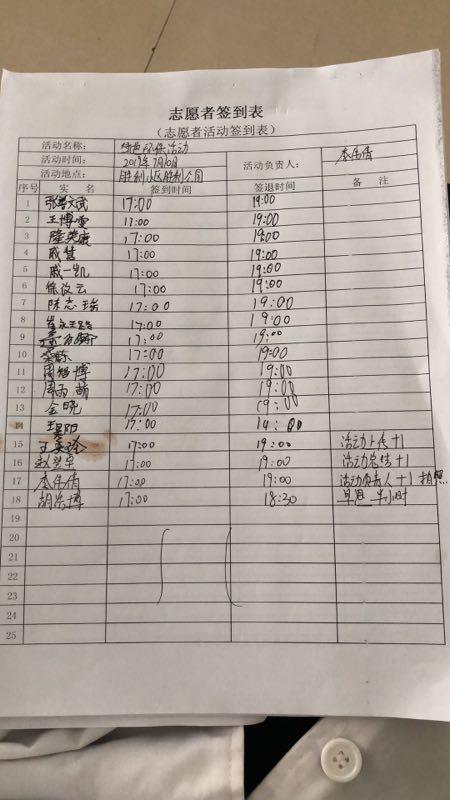 志愿者签到表
（志愿者活动签到表）
活动名称： 绿色环保活动
活动时间： 2019年7月10日 活动负责人： 李伟倩
活动地点： 胜利小区胜利公园
序号 实 名 签到时间 签退时间 备 注
1 17:00 19:00
2 王博雪 17:00 19:00
3 隆英康 17:00 19:00
4 戚慧 17:00 19:00
5 戚一凯 17:00 19:00
6 徐汉云 17:00 19:00
7 陈志瑞 17:00 19:00
8 17:00 19:00
9 17:00 19:00
10 17:00 19:00
11 周智博 17:00 19:00
12 周雨萌 17:00 19:00
13 金晓 17:00 19:00
14 17:00 19:00
15 17:00 19:00 活动上传+1
16 17:00 19:00 活动总结+1
17 李伟倩 17:00 19:00 活动负责人+1 拍照
18 胡浩博 17:00 18:30 早退 半小时
19
20
21
22
23
24
25